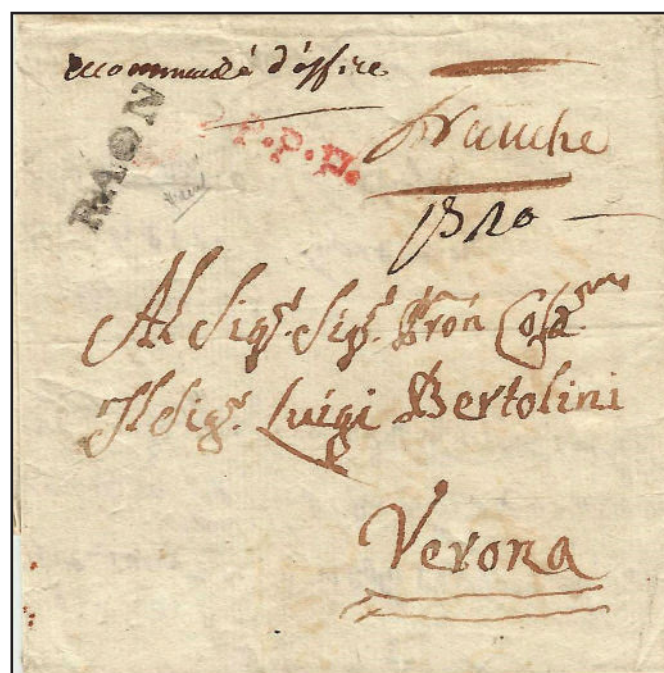 recommandé d'office
RAON
P.P.P.P.
franche
Al Sigr. Sigr. Pron Colmo
Il Sigr. Luigi Bertolini
Verona